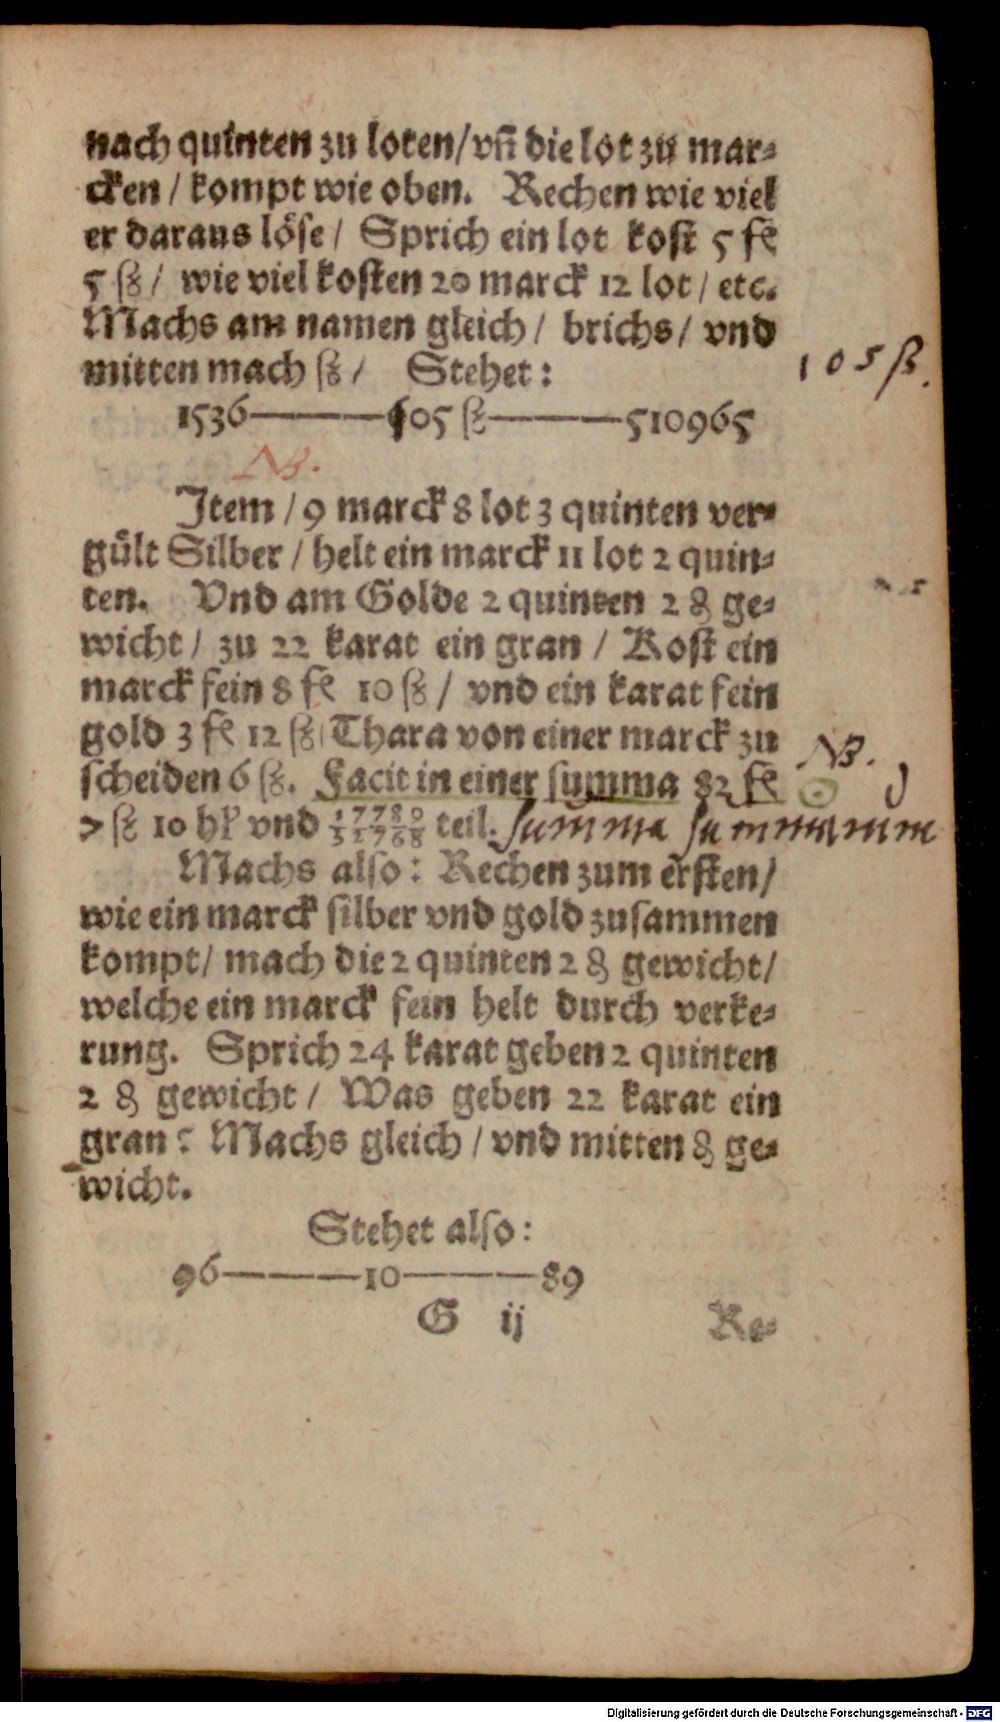 nach quinten zu loten/vñ die lot zu mar⸗
cken / kompt wie oben. Rechen wie viel
er daraus löse / Sprich ein lot kost 5 fl
5 ß / wie viel kosten 20 marck 12 lot / etc.
Machs am namen gleich / brichs / vnd
mitten mach ß / Stehet:
105 ß.
1536———105 ß———510965
NB.
Item / 9 marck 8 lot 3 quinten ver⸗
gült Silber / helt ein marck 11 lot 2 quin⸗
ten. Vnd am Golde 2 quinten 2 ₰ ge⸗
wicht / zu 22 karat ein gran / Kost ein
marck fein 8 fl 10 ß / vnd ein karat fein
gold 3 fl 12 ß/ Thara von einer marck zu
NB.
scheiden 6 ß. Facit in einer summa 82 fl
7 ß 10 hl vnd teil. Summa Summarum
Machs also: Rechen zum ersten /
wie ein marck silber vnd gold zusammen
kompt / mach die 2 quinten 2 ₰ gewicht /
welche ein marck fein helt durch verke⸗
rung. Sprich 24 karat geben 2 quinten
2 ₰ gewicht / Was geben 22 karat ein
gran? Machs gleich / vnd mitten ₰ ge⸗
wicht.
Stehet also:
96———10———89
G ij Re⸗
Digitalisierung gefördert durch die Deutsche Forschungsgemeinschaft - DFG